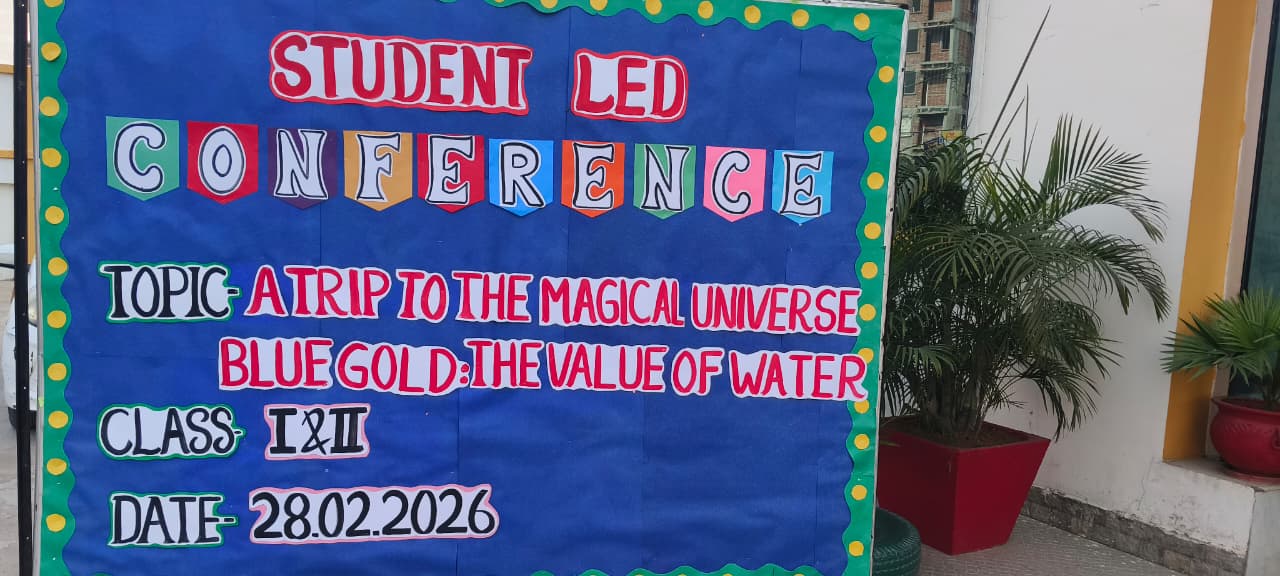 STUDENT LED
CONFERENCE
TOPIC- A TRIP TO THE MAGICAL UNIVERSE
BLUE GOLD: THE VALUE OF WATER
CLASS- I & II
DATE- 28.02.2026